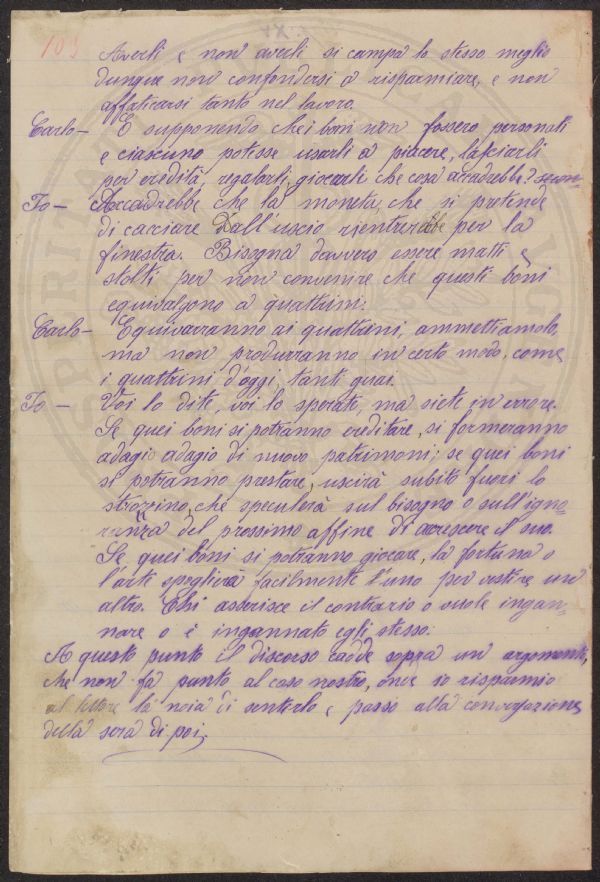 103
Averli e non averli si campa lo stesso, meglio
dunque non confondersi a risparmiare, e non
affaticarsi tanto nel lavoro.
Carlo — E supponendo che i boni non fossero personali
e ciascuno potesse usarli a piacere, lasciarli
per eredità, regalarli, giocarli che cosa accadrebbe?
Io — Accadrebbe che la moneta, che si pretende
di cacciare dall'uscio rientrerebbe per la
finestra. Bisogna davvero essere matti e
stolti per non convenire che questi boni
equivalgono a quattrini.
Carlo — Equivarranno ai quattrini, ammettiamolo,
ma non produrranno in certo modo, come
i quattrini d'oggi, tanti guai.
Io — Voi lo dite, voi lo sperate, ma siete in errore.
Se quei boni si potranno ereditare, si formeranno
adagio adagio di nuovo patrimoni; se quei boni
si potranno prestare, uscirà subito fuori lo
strozzino, che speculerà sul bisogno o sull'igno-
ranza del prossimo affine di accrescere il suo.
Se quei boni si potranno giocare, la fortuna o
l'arte spoglierà facilmente l'uno per vestire un
altro. Chi asserisce il contrario o vuole ingan-
nare o è ingannato egli stesso.
A questo punto il discorso cadde sopra un argomento,
che non fa punto al caso nostro, onde io risparmio
al lettore la noia di sentirlo e passo alla conversazione
della sera di poi.